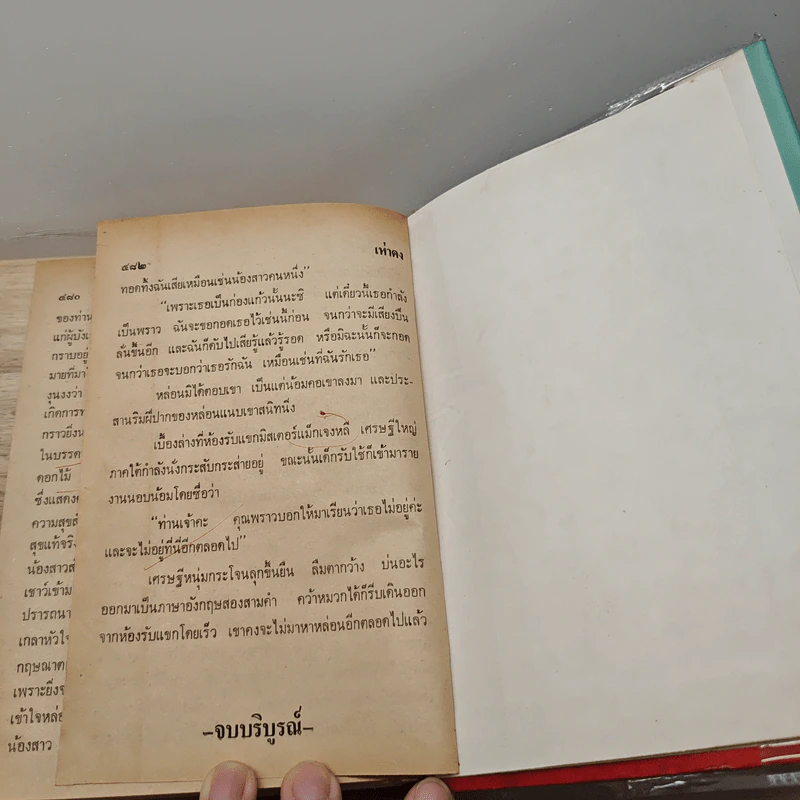 ๔๘๐
ของท่าน
แก่ผู้บังเ
กราบอยู่
มายที่มา
งุนงงว่า
เกิดการพ
กราวยิ่งน
ในบรรด
ดอกไม้
ซึ่งแสดง
ความสุขส
สุขแท้จริง
น้องสาวส
เชาว์เข้าม
ปรารถนา
เกลาหัวใจ
กฤษณาต
เพราะยิ่งจ
เข้าใจหล่อ
น้องสาว
๔๘๒
เห่าดง
ทอดทิ้งฉันเสียเหมือนเช่นน้องสาวคนหนึ่ง"
"เพราะเธอเป็นก่องแก้วนั้นนะซิ แต่เดี๋ยวนี้เธอกำลัง
เป็นพราว ฉันจะขอกอดเธอไว้เช่นนี้ก่อน จนกว่าจะมีเสียงปืน
ลั่นขึ้นอีก และฉันก็ดับไปเสียรู้แล้วรู้รอด หรือมิฉะนั้นก็จะกอด
จนกว่าเธอจะบอกว่าเธอรักฉัน เหมือนเช่นที่ฉันรักเธอ"
หล่อนมิได้ตอบเขา เป็นแต่น้อมคอเขาลงมา และประ-
สานริมฝีปากของหล่อนแนบเขาสนิทนิ่ง
เบื้องล่างที่ห้องรับแขกมิสเตอร์แม็กเจงหลี เศรษฐีใหญ่
ภาคใต้กำลังนั่งกระสับกระส่ายอยู่ ขณะนั้นเด็กรับใช้ก็เข้ามาราย
งานนอบน้อมโดยซื่อว่า
"ท่านเจ้าคะ คุณพราวบอกให้มาเรียนว่าเธอไม่อยู่ค่ะ
และจะไม่อยู่ที่นี่อีกตลอดไป"
เศรษฐีหนุ่มกระโจนลุกขึ้นยืน ลืมตากว้าง บ่นอะไร
ออกมาเป็นภาษาอังกฤษสองสามคำ คว้าหมวกได้ก็รีบเดินออก
จากห้องรับแขกโดยเร็ว เขาคงจะไม่มาหาหล่อนอีกตลอดไปแล้ว
–จบบริบูรณ์–